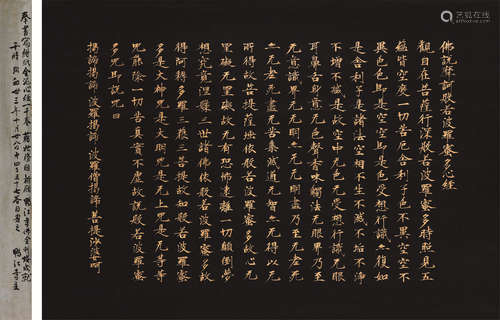 佛說摩訶般若波羅蜜多心經
觀自在菩薩行深般若波羅蜜多時照見五
蘊皆空度一切苦厄舍利子色不異空空不
異色色即是空空即是色受想行識亦復如
是舍利子是諸法空相不生不滅不垢不淨
不增不減是故空中无色无受想行識无眼
耳鼻舌身意无色聲香味觸法无眼界乃至
无意識界无无明亦无无明盡乃至无老死
亦无老死盡无苦集滅道无智亦无得以无
所得故菩提薩埵依般若波羅蜜多故心无
罣礙无罣礙故无有恐怖遠離一切顛倒夢
想究竟涅槃三世諸佛依般若波羅蜜多故
得阿耨多羅三藐三菩提故知般若波羅蜜
多是大神咒是大明咒是无上咒是无等等
咒能除一切苦真實不虛故說般若波羅蜜
多咒即說咒曰
揭諦揭諦 波羅揭諦 波羅僧揭諦 菩提沙婆呵
奉書寫紺紙金泥心經一千卷
于時 昭和廿三年十月廿八日
艺狐在线
artfoxlive.com